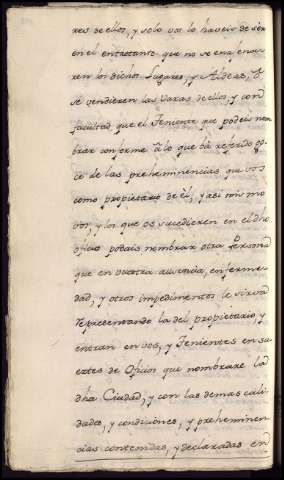 res de ellos, y solo vos lo haveis de ser
en el entretanto que no se enagenaren
ren los dichos Lugares, y Aldeas, ô
se vendieren las Varas de ellos, y con
facultad, que el Teniente que podeis nom
brar conforme â lo que bâ referido go
ce de las preheminencias que vos
como propietario de èl, y asi mismo
vos, y los que os sucedieren en el dho
oficio podais nombrar otra Persona
que en vuestra ausencia, enferme
dad, y otros impedimentos le sirva
representando la del propietario, y
entran en vos, y Tenientes en su
extes de Oficios que nombrare la
dha Ciudad, y con las demas cali
dades, y condiciones, y preheminen
cias contenidas, y declaradas en